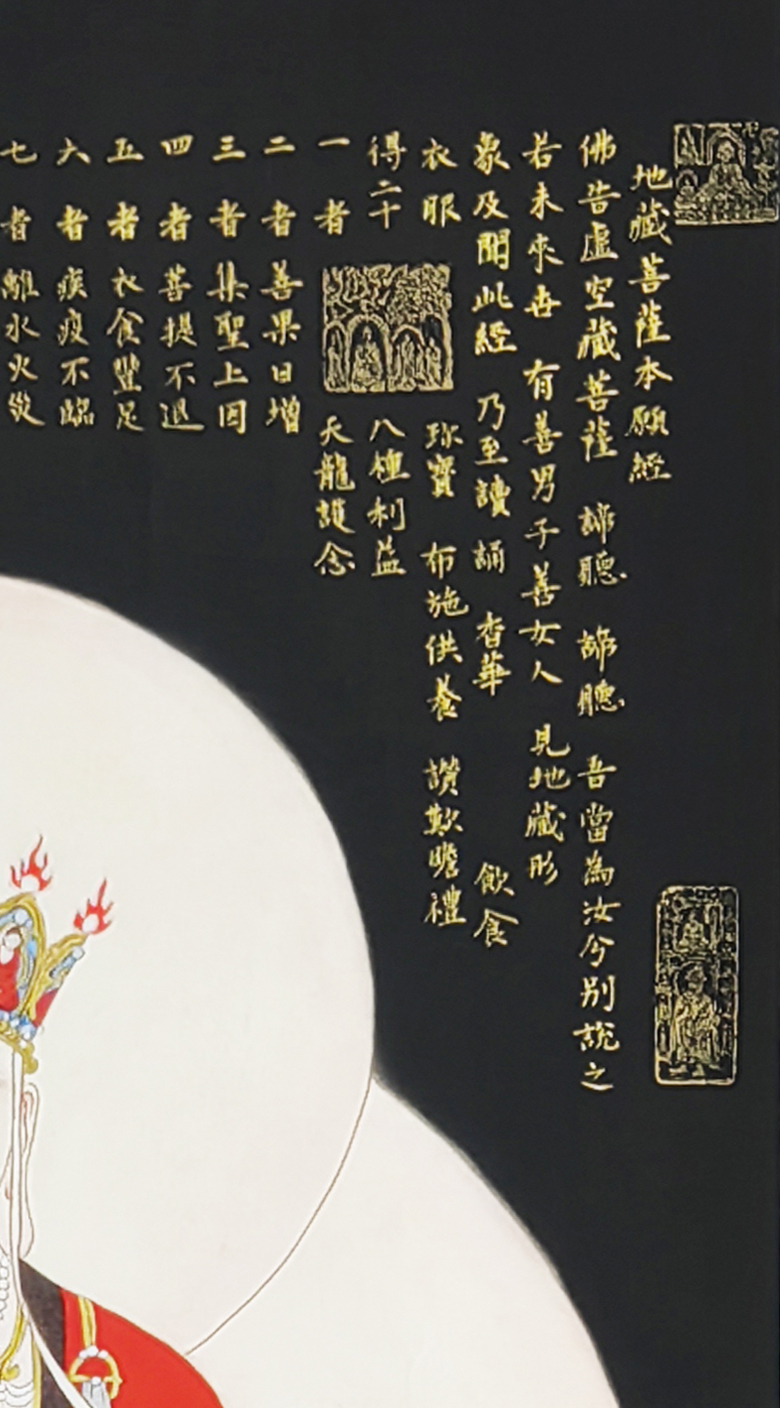 地藏菩薩本願經
佛告虛空藏菩薩 諦聽 諦聽 吾當為汝分別說之
若未來世 有善男子善女人 見地藏形
象及聞此經 乃至讀誦 香華 飲食
衣服 珍寶 布施供養 讚歎瞻禮
得二十八種利益
一者 天龍護念
二者 善果日增
三者 集聖上因
四者 菩提不退
五者 衣食豐足
六者 疾疫不臨
七者 離水火災